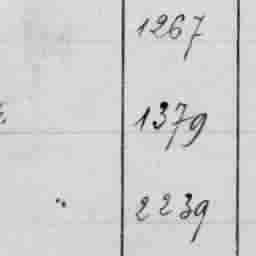 1267
1379
" 2239